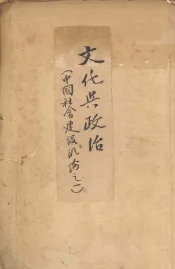 文化與政治
(中國社會建設論之一)